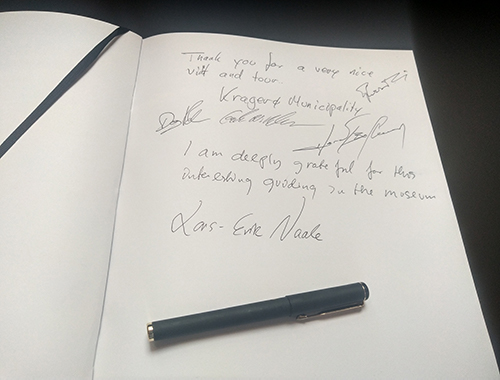 Thank you for a very nice
visit and tour
Kragerø Municipality
I am deeply grateful for this
interesting guiding in the museum
Lars-Erik Naale